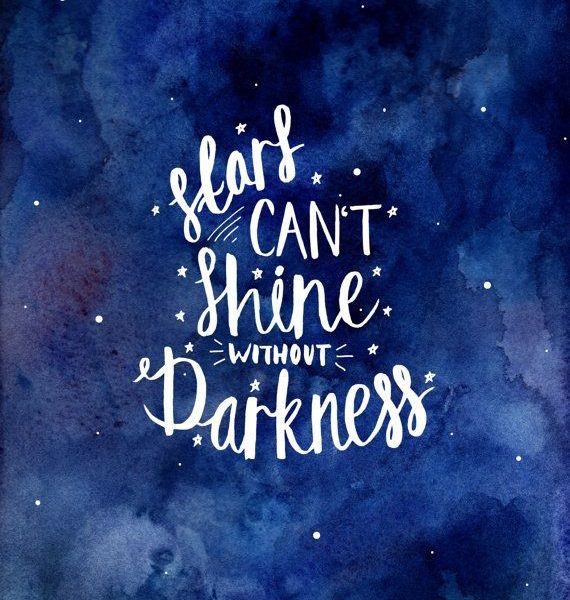 stars
CAN'T
shine
WITHOUT
Darkness